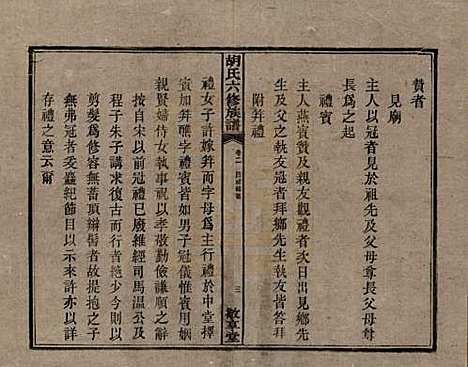 贊者
見廟
主人以冠者見於祖先及父母尊長父母尊
長爲之起
禮賓
主人燕賓贊及親友觀禮者次日出見鄉先
生及父之執友冠者拜鄉先生執友皆答拜
附笄禮
胡氏六修族譜
卷一
三
敬享堂
禮女子許嫁笄而字母爲主行禮於中堂擇
賓加笄醮字禮賓皆如男子冠儀惟賓用姻
親婦女執事侍女以孝敬勤儉謙順之辭
按自宋以前冠禮已廢雖經司馬溫公及
程子朱子講求復古而行者絶少今則以
剪髮爲修容無蓄頂辮髻者故提一切男子
無弗冠者爰蠡紀節目以來許亦以詳
存禮之意云爾